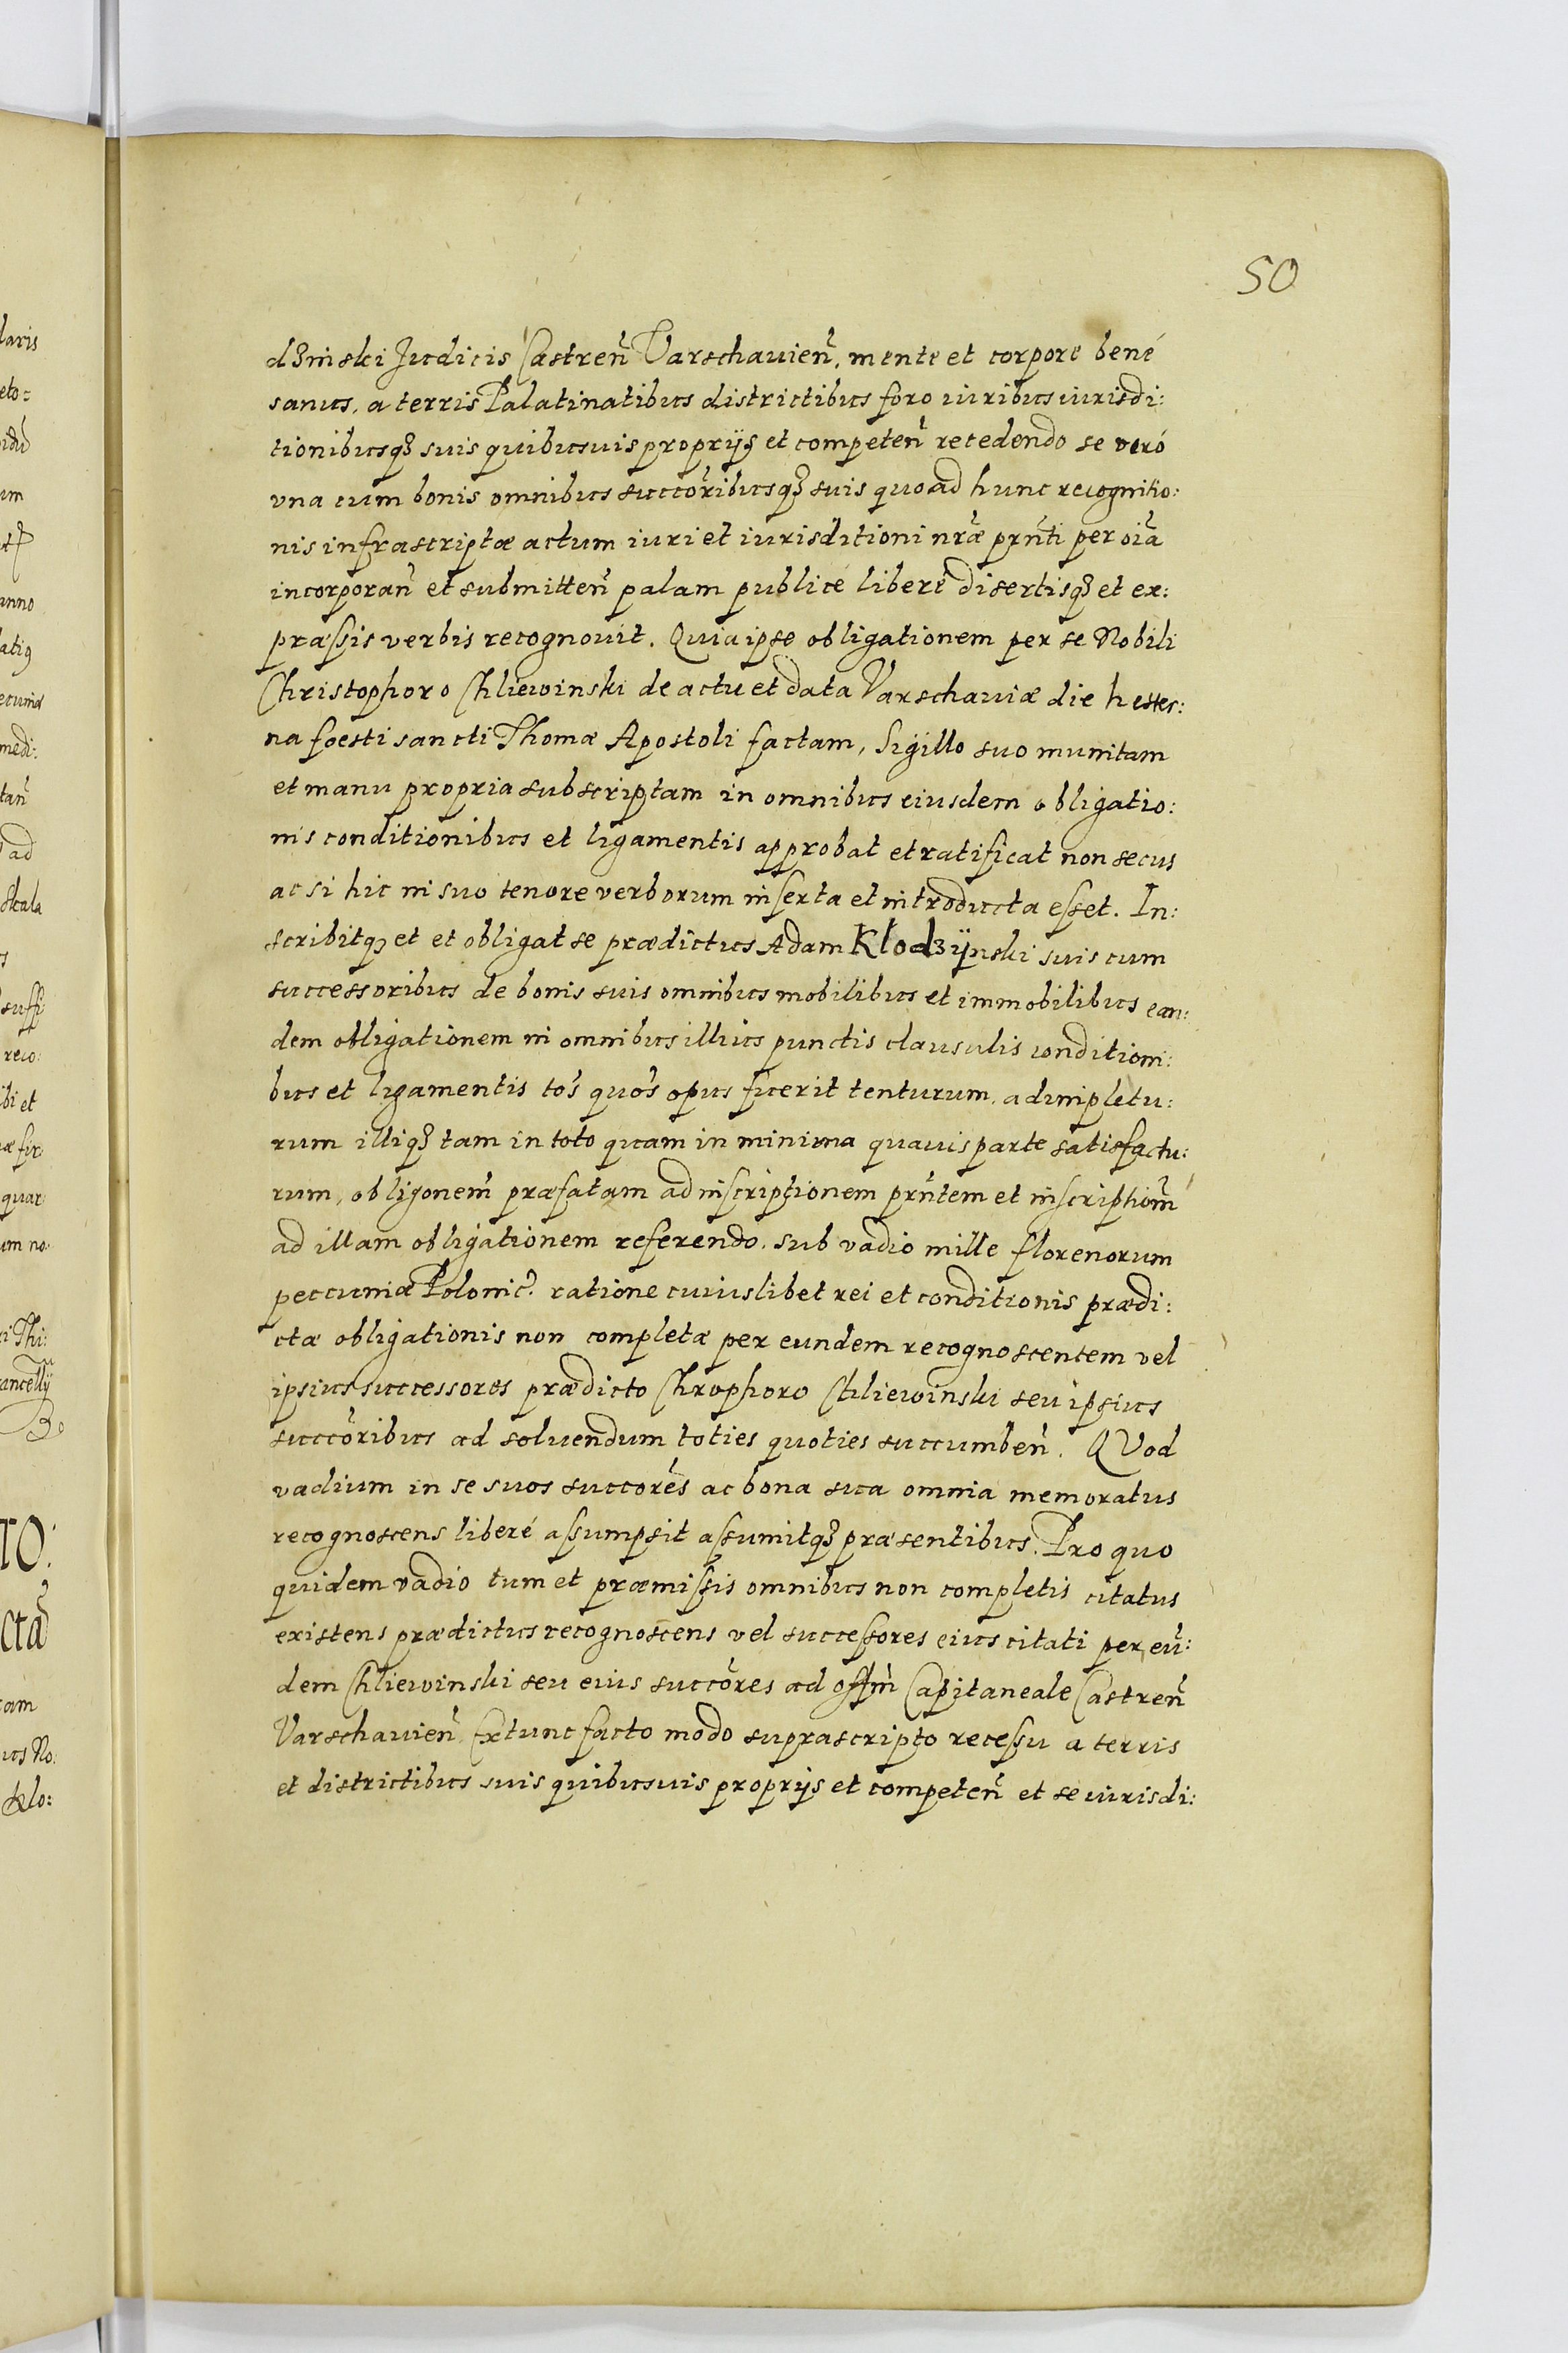 50
dzinski Judicis Castreñ Varschauieñ, mente et corpore bené
sanus, a terris Palatinatibus districtibus foro iuribus iurisdi:
tionibusqȝ suis quibusuis proprijs et competeñ recedendo se veró
vna cum bonis omnibus succõribusqȝ suis quo ad hunc recognitio:
nis infrascriptæ actum iuri et iurisditioni nr̃æ prñti per oĩa
incorporañ et submitteñ palam publicé liberé disertisqȝ et ex:
præssis verbis recognouit. Quia ipse obligationem per se Nobili
Christophoro Chliewinski de actu et data Varschauiæ die hester:
na foesti sancti Thomæ Apostoli factam, Sigillo suo munitam
et manu propria subscriptam in omnibus eiusdem obligatio:
nis conditionibus et ligamentis approbat et ratificat non secus
ac si hic in suo tenore verborum inserta et introducta esset. In:
scribitqȝ et et obligat se prædictus Adam Kłodzÿnski suis cum
successoribus de bonis suis omnibus mobilibus et immobilibus ean:
dem obligationem in omnibus illius punctis clausulis conditioni:
bus et ligamentis tos̃ quos̃ opus fuerit tenturum, adimpletu:
rum illiqȝ tam in toto quam in minima quauis parte satisfactu:
rum, obligonem̃ præfatam ad inscriptionem prñtem et inscriptiom̃
ad illam obligationem referendo, sub vadio mille florenorum
peccuniæ Polonic̃. ratione cuiuslibet rei et conditionis prædi:
ctæ obligationis non completæ per eundem recognoscentem vel
ipsius successores prædicto Chrophoro Chliewinski seu ipsius
succcõribus ad soluendum toties quoties succumbeñ. QVod
vadium in se suos succorẽs ac bona sua omnia memoratus
recognoscens liberé assumpsit assumitqȝ præsentibus. Pro quo
quidem vadio tum et præmissis omnibus non completis citatus
existens prædictus recognoscens vel successores eius citati per eũ:
dem Chliewinski seu eius succõres ad offm̃ Capitaneale Castreñ
Varschauieñ Extunc facto modo suprascripto recessu a terris
et districtibus suis quibusuis proprijs et competeñ et se iurisdi: